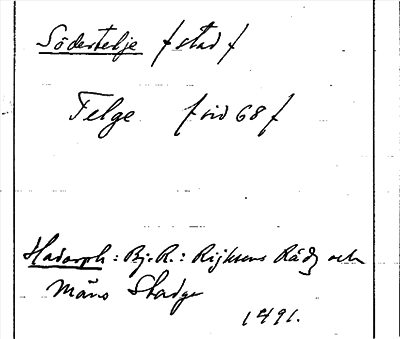 Södertelje / stad /
Telge / sid 68 /
Hadorph: Bj. R.: Rijksens Rådz och
Mäns Stadge
1491.